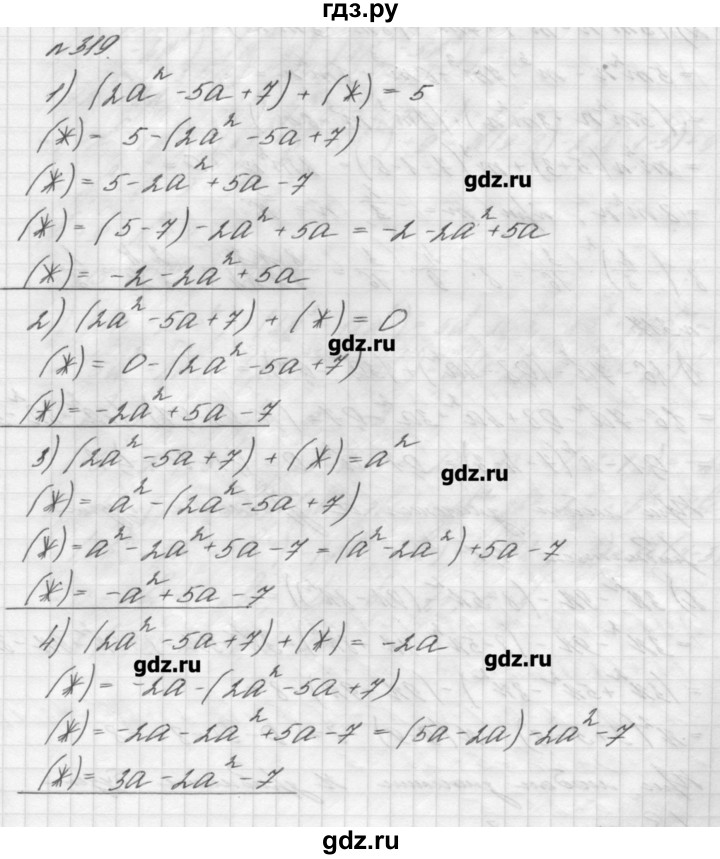 гдз.ру
№319
1) (2a² -5a+7) + (*) = 5
(*) = 5-(2a² -5a+7)
(*) = 5-2a²+5a-7
gdz.ru
(*) = (5-7)-2a²+5a = -2-2a²+5a
(*) = -2-2a²+5a
2) (2a²-5a+7) + (*) = 0
gdz.ru
(*) = 0-(2a²-5a+7)
(*) = -2a²+5a-7
3) (2a²-5a+7) + (*) = a²
gdz.ru
(*) = a²-(2a²-5a+7)
(*) = a²-2a²+5a-7 = (a²-2a²)+5a-7
(*) = -a²+5a-7
4) (2a²-5a+7)+(*) = -2a
gdz.ru
gdz.ru
(*) = -2a-(2a²-5a+7)
(*) = -2a-2a²+5a-7 = (5a-2a)-2a²-7
(*) = 3a-2a²-7
gdz.ru